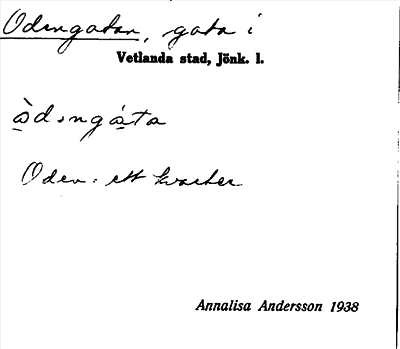 Odengatan, gata i
Vetlanda stad, Jönk. l.
Oden: ett kvarter
Annalisa Andersson 1938